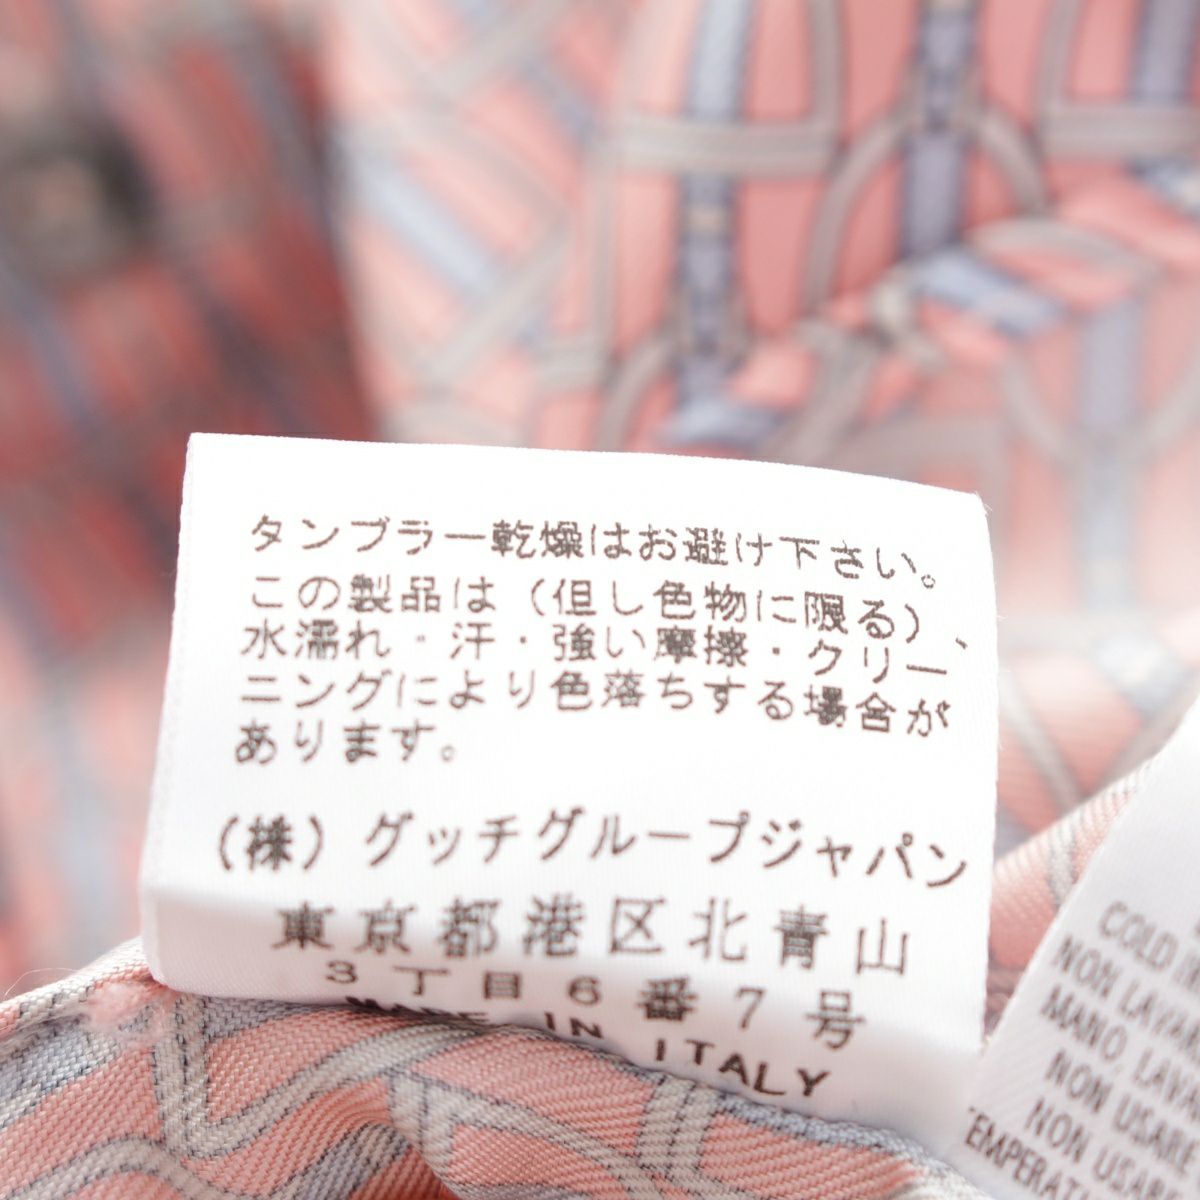 タンブラー乾燥はお避け下さい。
この製品は（但し色物に限る）、
水濡れ・汗・強い摩擦・クリー
ニングにより色落ちする場合が
あります。
（株）グッチグループジャパン
東京都港区北青山
3丁目6番7号
MADE IN ITALY
COLD
NON LAVAR
MANO LAVA
NON USARE
NON USAR
TEMPERAT